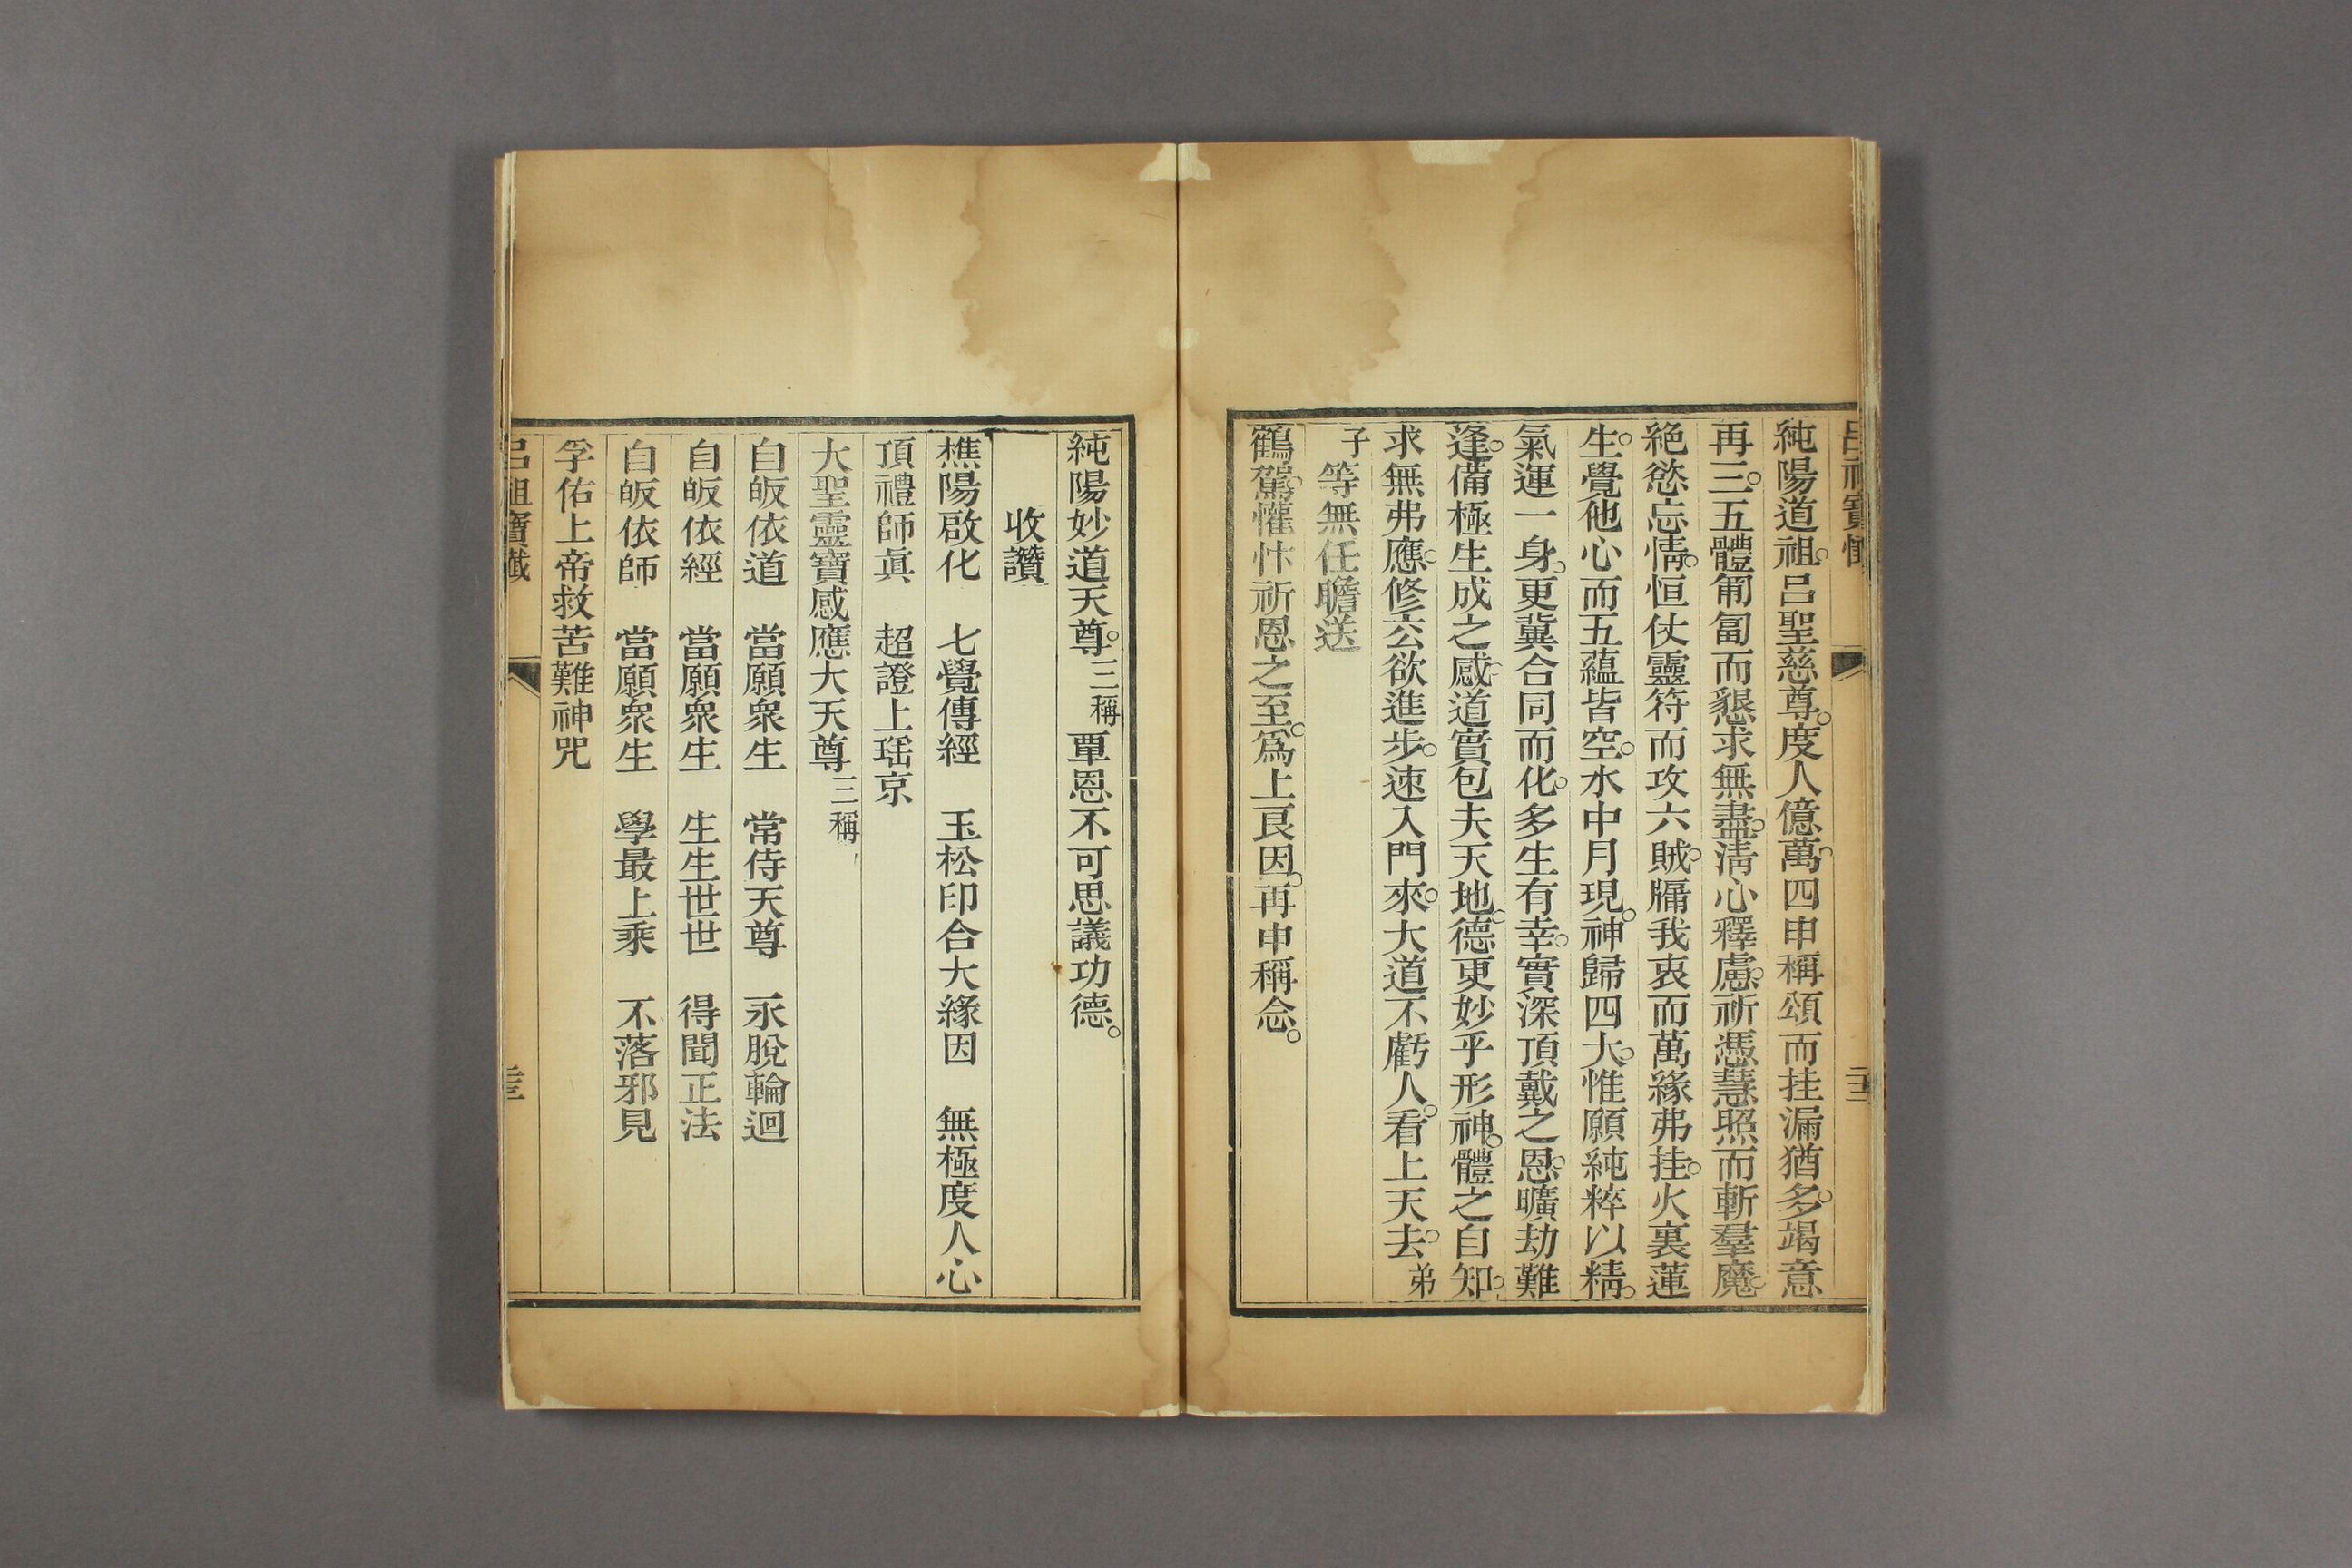 呂祖寶懺
純陽道祖。呂聖慈尊。度人億萬。四申稱頌而挂漏猶多。竭意
再三。五體匍匐而懇求無盡。淸心釋慮。祈憑慧照而斬羣魔。
絕慾忘情。恒仗靈符而攻六賊。牖我衷而萬緣弗挂。火裏蓮
生。覺他心而五蘊皆空。水中月現。神歸四大。惟願純粹以精。
氣運一身。更冀合同而化。多生有幸。實深頂戴之恩。曠劫難
逢。備極生成之感。道實包夫天地。德更妙乎形神。體之自知。
求無弗應。修眞欲進步。速入門來。大道不虧人。看上天去。弟
子等無任瞻送
鶴駕。懽忭祈恩之至。爲上良因。再申稱念。
純陽妙道天尊。三稱 覃恩不可思議功德。
收讚
樵陽啟化 七覺傳經 玉松印合大緣因 無極度人心
頂禮師眞 超證上瑤京
大聖靈寶感應大天尊三稱
自皈依道 當願衆生 常侍天尊 永脫輪迴
自皈依經 當願衆生 生生世世 得聞正法
自皈依師 當願衆生 學最上乘 不落邪見
孚佑上帝救苦難神咒
呂祖寶懺